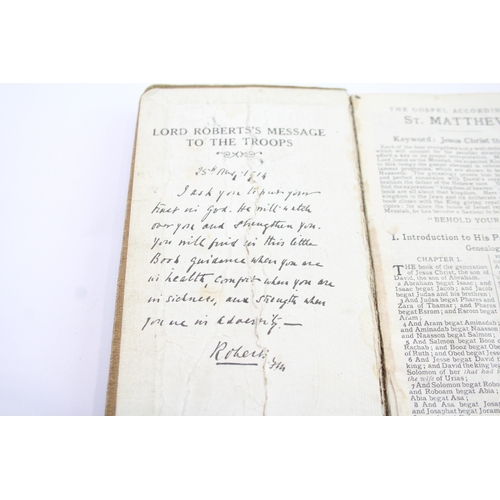 LORD ROBERTS'S MESSAGE
TO THE TROOPS
25th Aug. 1914
I ask you to put your
trust in God. He will watch
over you and strengthen you.
You will find in this little
Book guidance when you are
in health, comfort when you are
in sickness, and strength when
you are in adversity—
Roberts
FM
THE GOSPEL ACCORDIN
ST. MATTHEW
Keyword: Jesus Christ th
"BEHOLD YOUR
I. Introduction to His P
Genealog
CHAPTER I.
THE book of the generation
of Jesus Christ, the son of
David, the son of Abraham.
2 Abraham begat Isaac; and
Isaac begat Jacob; and Jacob
begat Judas and his brethren;
3 And Judas begat Phares and
Zara of Thamar; and Phares
begat Esrom; and Esrom begat
Aram;
4 And Aram begat Aminadab;
and Aminadab begat Naasson;
and Naasson begat Salmon;
5 And Salmon begat Booz of
Rachab; and Booz begat Obed
of Ruth; and Obed begat Jesse;
6 And Jesse begat David the
king; and David the king begat
Solomon of her that had been
the wife of Urias;
7 And Solomon begat Roboam;
and Roboam begat Abia; and
Abia begat Asa;
8 And Asa begat Josaphat;
and Josaphat begat Joram;